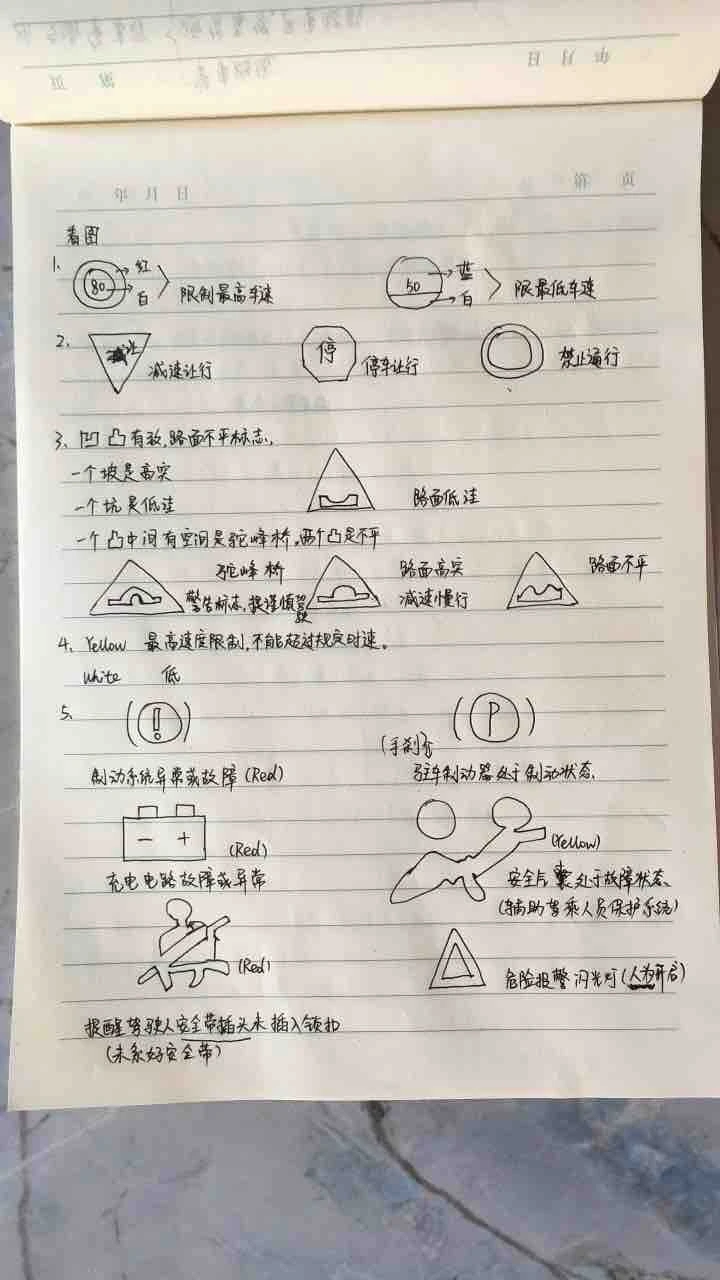 年 月 日
第 页
年 月 日
第 页
看图
1. 80 红 白 限制最高车速 50 蓝 白 限最低车速
2. 减让 减速让行 停 停车让行 禁止通行
3. 凹凸有致,路面不平标志,
一个坡是高突
一个坑是低洼 路面低洼
一个凸中间有空间是驼峰桥,两个凸是不平
驼峰桥 路面高突 路面不平
警告标志,提谨慎驾驶 减速慢行
4. Yellow 最高速度限制,不能超过规定时速。
White 低
5. (!) (P)
(手刹)
制动系统异常或故障(Red) 驻车制动器处于制动状态.
- + (Red) (Yellow)
充电电路故障或异常 安全气囊处于故障状态、
(辅助驾乘人员保护系统)
(Red) 危险报警闪光灯(人为开启)
提醒驾驶人安全带插头未插入锁扣
(未系好安全带)